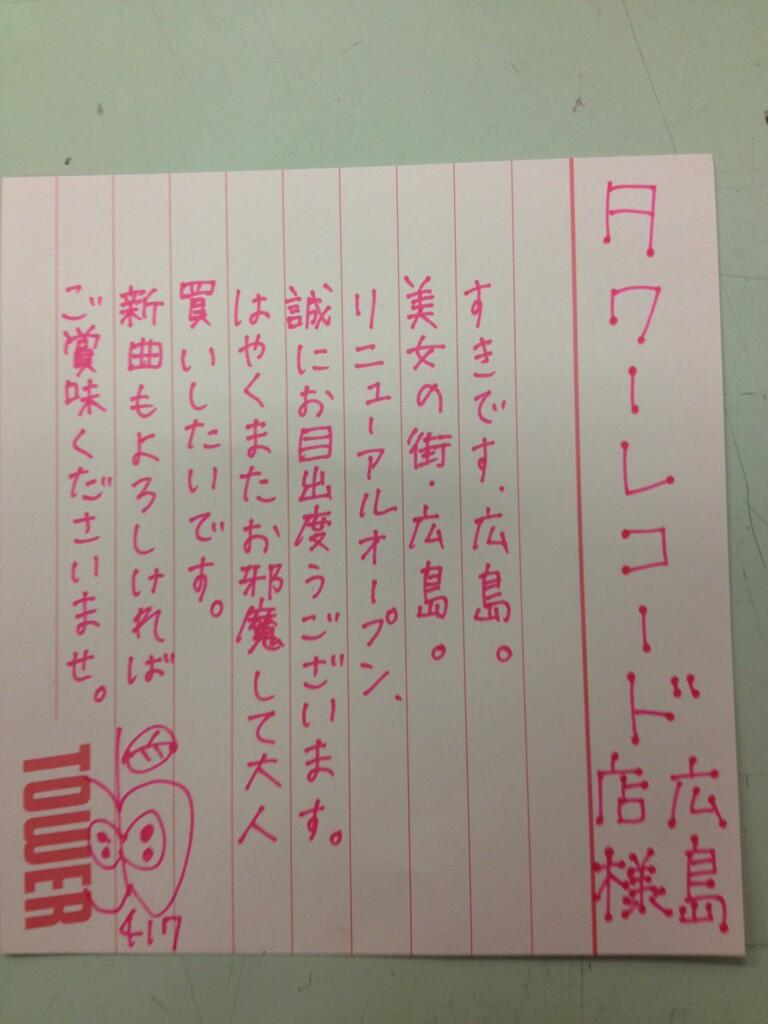 タワーレコード
広島
店様
すきです、広島。
美女の街・広島。
リニューアルオープン、
誠にお目出度うございます。
はやくまたお邪魔して大人
買いしたいです。
新曲もよろしければ
ご賞味くださいませ。
TOWER
417